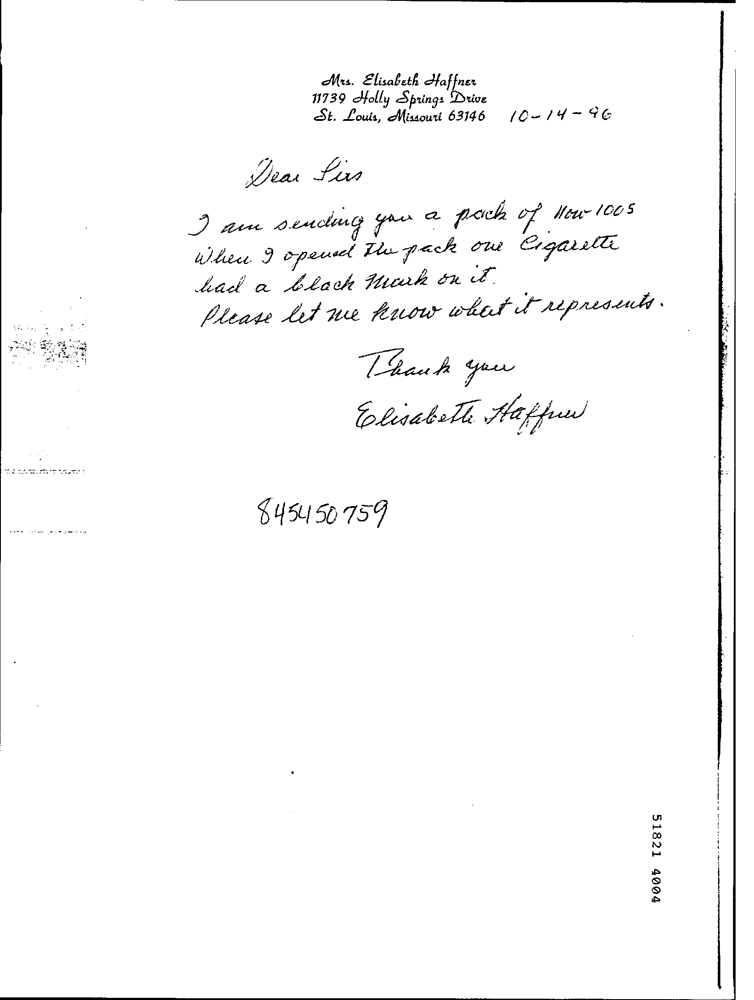 Mrs. Elisabeth Haffner
11739 Holly Springs Drive
St. Louis, Missouri 63146 10-14-96
Dear Sirs
I am sending you a pack of Now 100s
When I opened the pack one Cigarette
had a black mark on it.
Please let me know what it represents.
Thank you
Elisabeth Haffner
845450759
51821 4004